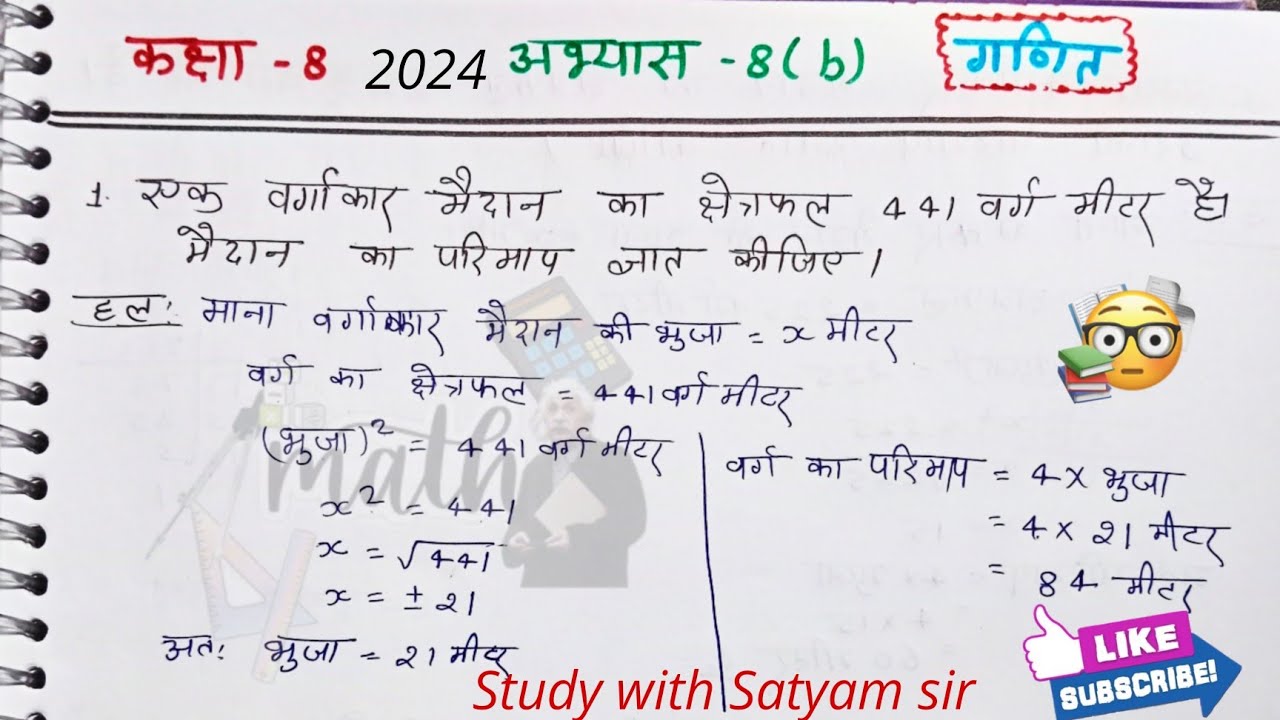 कक्षा -8 2024 अभ्यास -8(b) गणित
1. एक वर्गाकार मैदान का क्षेत्रफल 441 वर्ग मीटर है।
मैदान का परिमाप ज्ञात कीजिए।
हल: माना वर्गाकार मैदान की भुजा = x मीटर
वर्ग का क्षेत्रफल = 441 वर्ग मीटर
(भुजा)² = 441 वर्ग मीटर
x² = 441
x = √441
x = ± 21
अतः भुजा = 21 मीटर
वर्ग का परिमाप = 4 × भुजा
= 4 × 21 मीटर
= 84 मीटर
math
LIKE
SUBSCRIBE!
Study with Satyam sir